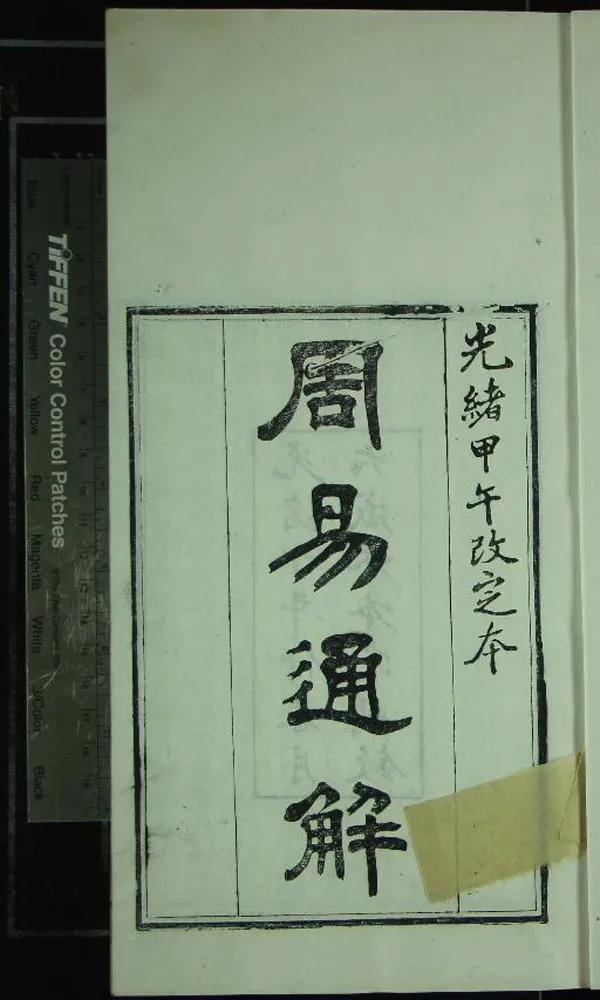 光緒甲午改定本
周易通解
TIFFEN Color Control Patches
Blue Cyan Green Yellow Red Magenta White 3/Color Black